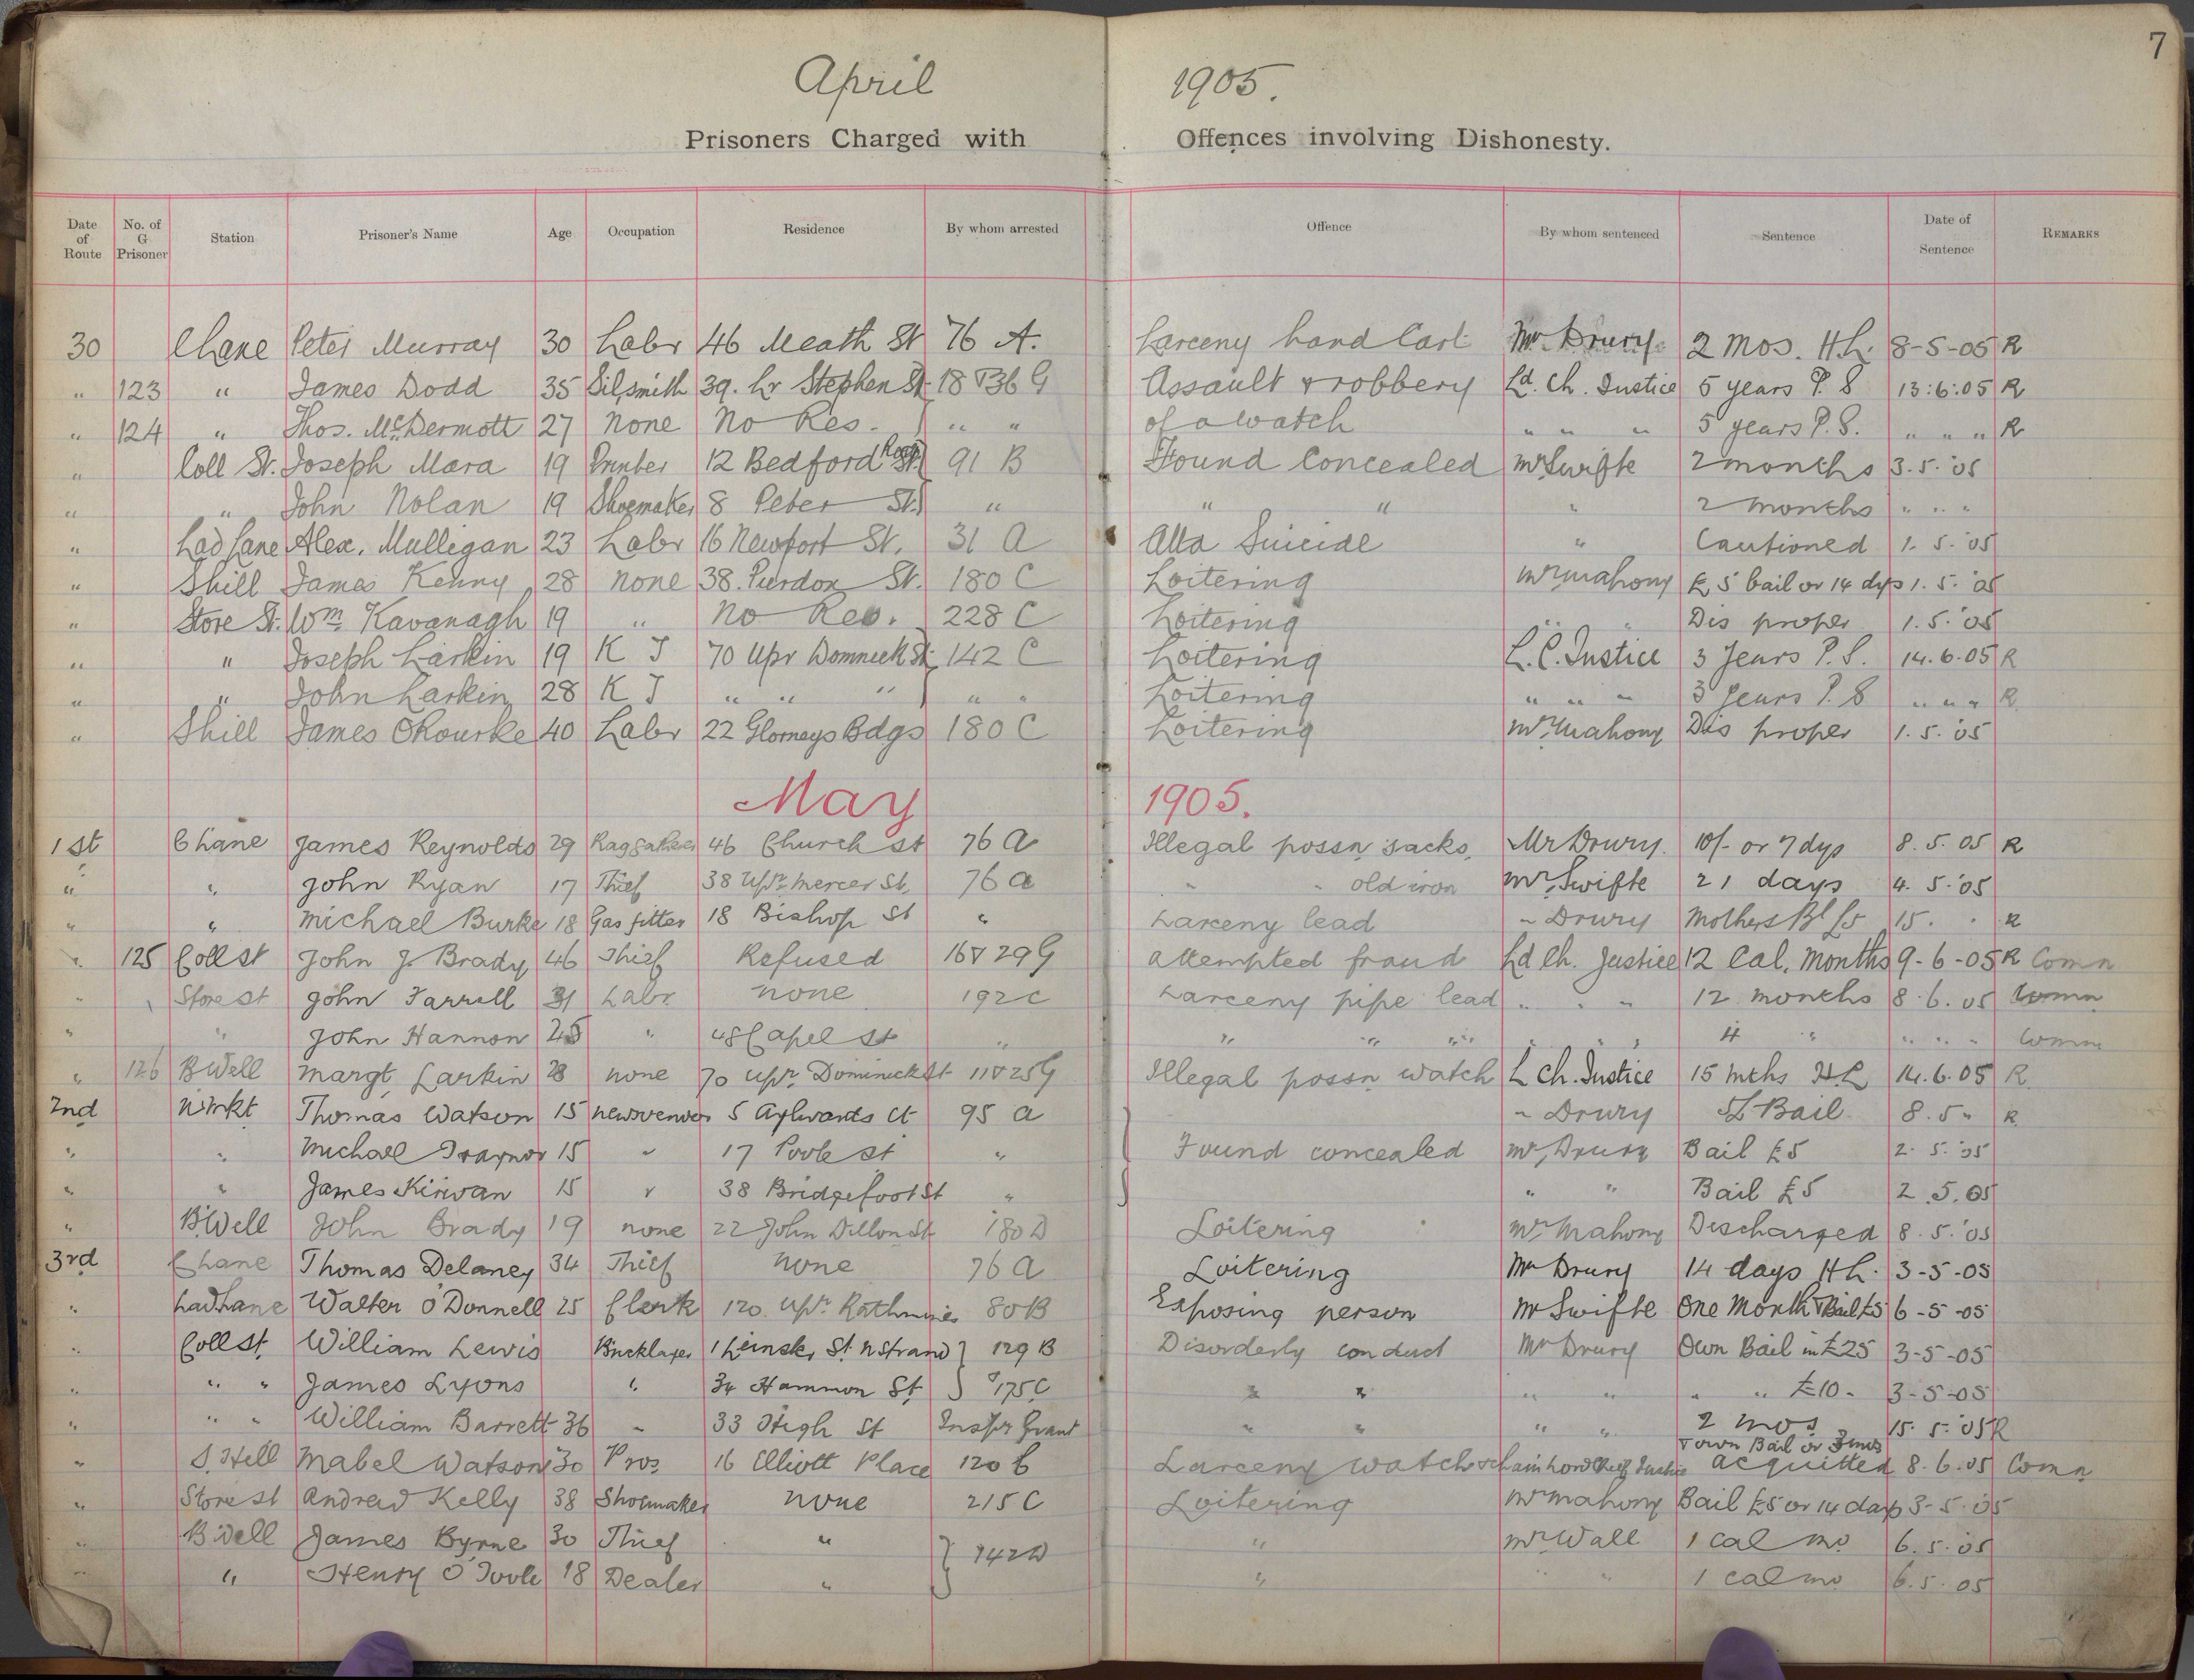 7
April 1905.
Prisoners Charged with Offences involving Dishonesty.
Date of Route No. of G Prisoner Station Prisoner's Name Age Occupation Residence By whom arrested Offence By whom sentenced Sentence Date of Sentence REMARKS
30 C Lane Peter Murray 30 Labr 46 Meath St 76 A. Larceny hand Cart Mr Drury 2 mos. H.L. 8-5-05 R
" 123 " James Dodd 35 Silsmith 39. Lr Stephen St 18 & 36 G Assault & robbery Ld. Ch. Justice 5 years P. S 13:6:05 R
" 124 " Thos. McDermott 27 none No Res. " " of a watch " " " 5 years P.S. " " " R
" Coll St. Joseph Mara 19 Printer 12 Bedford Row 91 B Found Concealed Mr Swifte 2 months 3.5.'05
" " John Nolan 19 Shoemaker 8 Peter St. " " " " 2 months " " "
" Lad Lane Alex. Mulligan 23 Labr 16 Newport St. 31 A Attd Suicide " Cautioned 1. 5.'05
" Shill James Kenny 28 none 38. Purdon St. 180 C Loitering Mr Mahony £5 bail or 14 dys 1. 5.'05
" Store St. Wm Kavanagh 19 " No Res. 228 C Loitering " " Dis proper 1. 5.'05
" " Joseph Larkin 19 K J 70 Upr Dominick St 142 C Loitering L. C. Justice 3 Years P. S. 14.6.05 R
" " John Larkin 28 K J " " " " " Loitering " " " 3 Years P. S " " " R
" Shill James ORourke 40 Labr 22 Glorneys Bdgs 180 C Loitering Mr Mahony Dis proper 1. 5.'05
May 1905.
1st C Lane James Reynolds 29 46 Church st 76 A Illegal possn sacks. Mr Drury. 10/- or 7 dys 8. 5. 05 R
" " John Ryan 17 Thief 38 Upr Mercer St. 76 a " " old iron Mr Swifte 21 days 4. 5.'05
" " Michael Burke 18 Gas fitter 18 Bishop St " Larceny lead " Drury Mothers Bl £5 15. " R
" 125 Coll st John J. Brady 46 Thief Refused 16 & 29 G attempted fraud Ld Ch. Justice 12 Cal. Months 9-6-05 R Comn
" Store st John Farrell 31 Labr none 192 C Larceny pipe lead " " " 12 months 8.6.05 Comn
" " John Hannon 25 " 48 Capel st " " " " " " " 4 " " " " Comn
" 126 B Well Margt. Larkin 28 none 70 upr. Dominick St 11 & 25 G Illegal possn watch L Ch. Justice 15 mths H.L 14.6.05 R.
2nd N. Mkt Thomas Watson 15 newsvendor 5 Aylwards Ct 95 a " Drury £ Bail 8. 5 " R
" " Michael Traynor 15 " 17 Poole st " Found concealed Mr. Drury Bail £5 2. 5.'05
" " James Kirwan 15 " 38 Bridgefoot St " " " Bail £5 2. 5. 05
" B. Well John Brady 19 none 22 John Dillon st 180 D Loitering Mr Mahony Discharged 8. 5.'05
3rd C Lane Thomas Delaney 34 Thief none 76 a Loitering Mr Drury 14 days H.L. 3-5-05
" Lad Lane Walter O'Donnell 25 Clerk 120 upr. Rathmines 80 B Exposing person Mr Swifte One Month & Bail £5 6-5-05
" Coll st. William Lewis Bricklayer 1 Leinster St. N Strand 129 B Disorderly conduct Mr Drury Own Bail in £25 3-5-05
" " " James Lyons " 34 Hammon St. & 175 C " " " " " " £10- 3-5-05
" " " William Barrett 36 " 33 High St Inspr Grant " " " " 2 mos 15. 5.'05 R
& own Bail or 3 mos
" S. Hill Mabel Watson 30 Pros 16 Elliott Place 120 C Larceny watch & chain Lord Chief Justice acquitted 8. 6.05 Comn
" Store st Andrew Kelly 38 Shoemaker none 215 C Loitering Mr Mahony Bail £5 or 14 days 3-5.05
" B. Well James Byrne 30 Thief " 142 D " Mr. Wall 1 cal mo. 6. 5.'05
" " Henry O'Toole 18 Dealer " " " " 1 cal mo 6.5.05